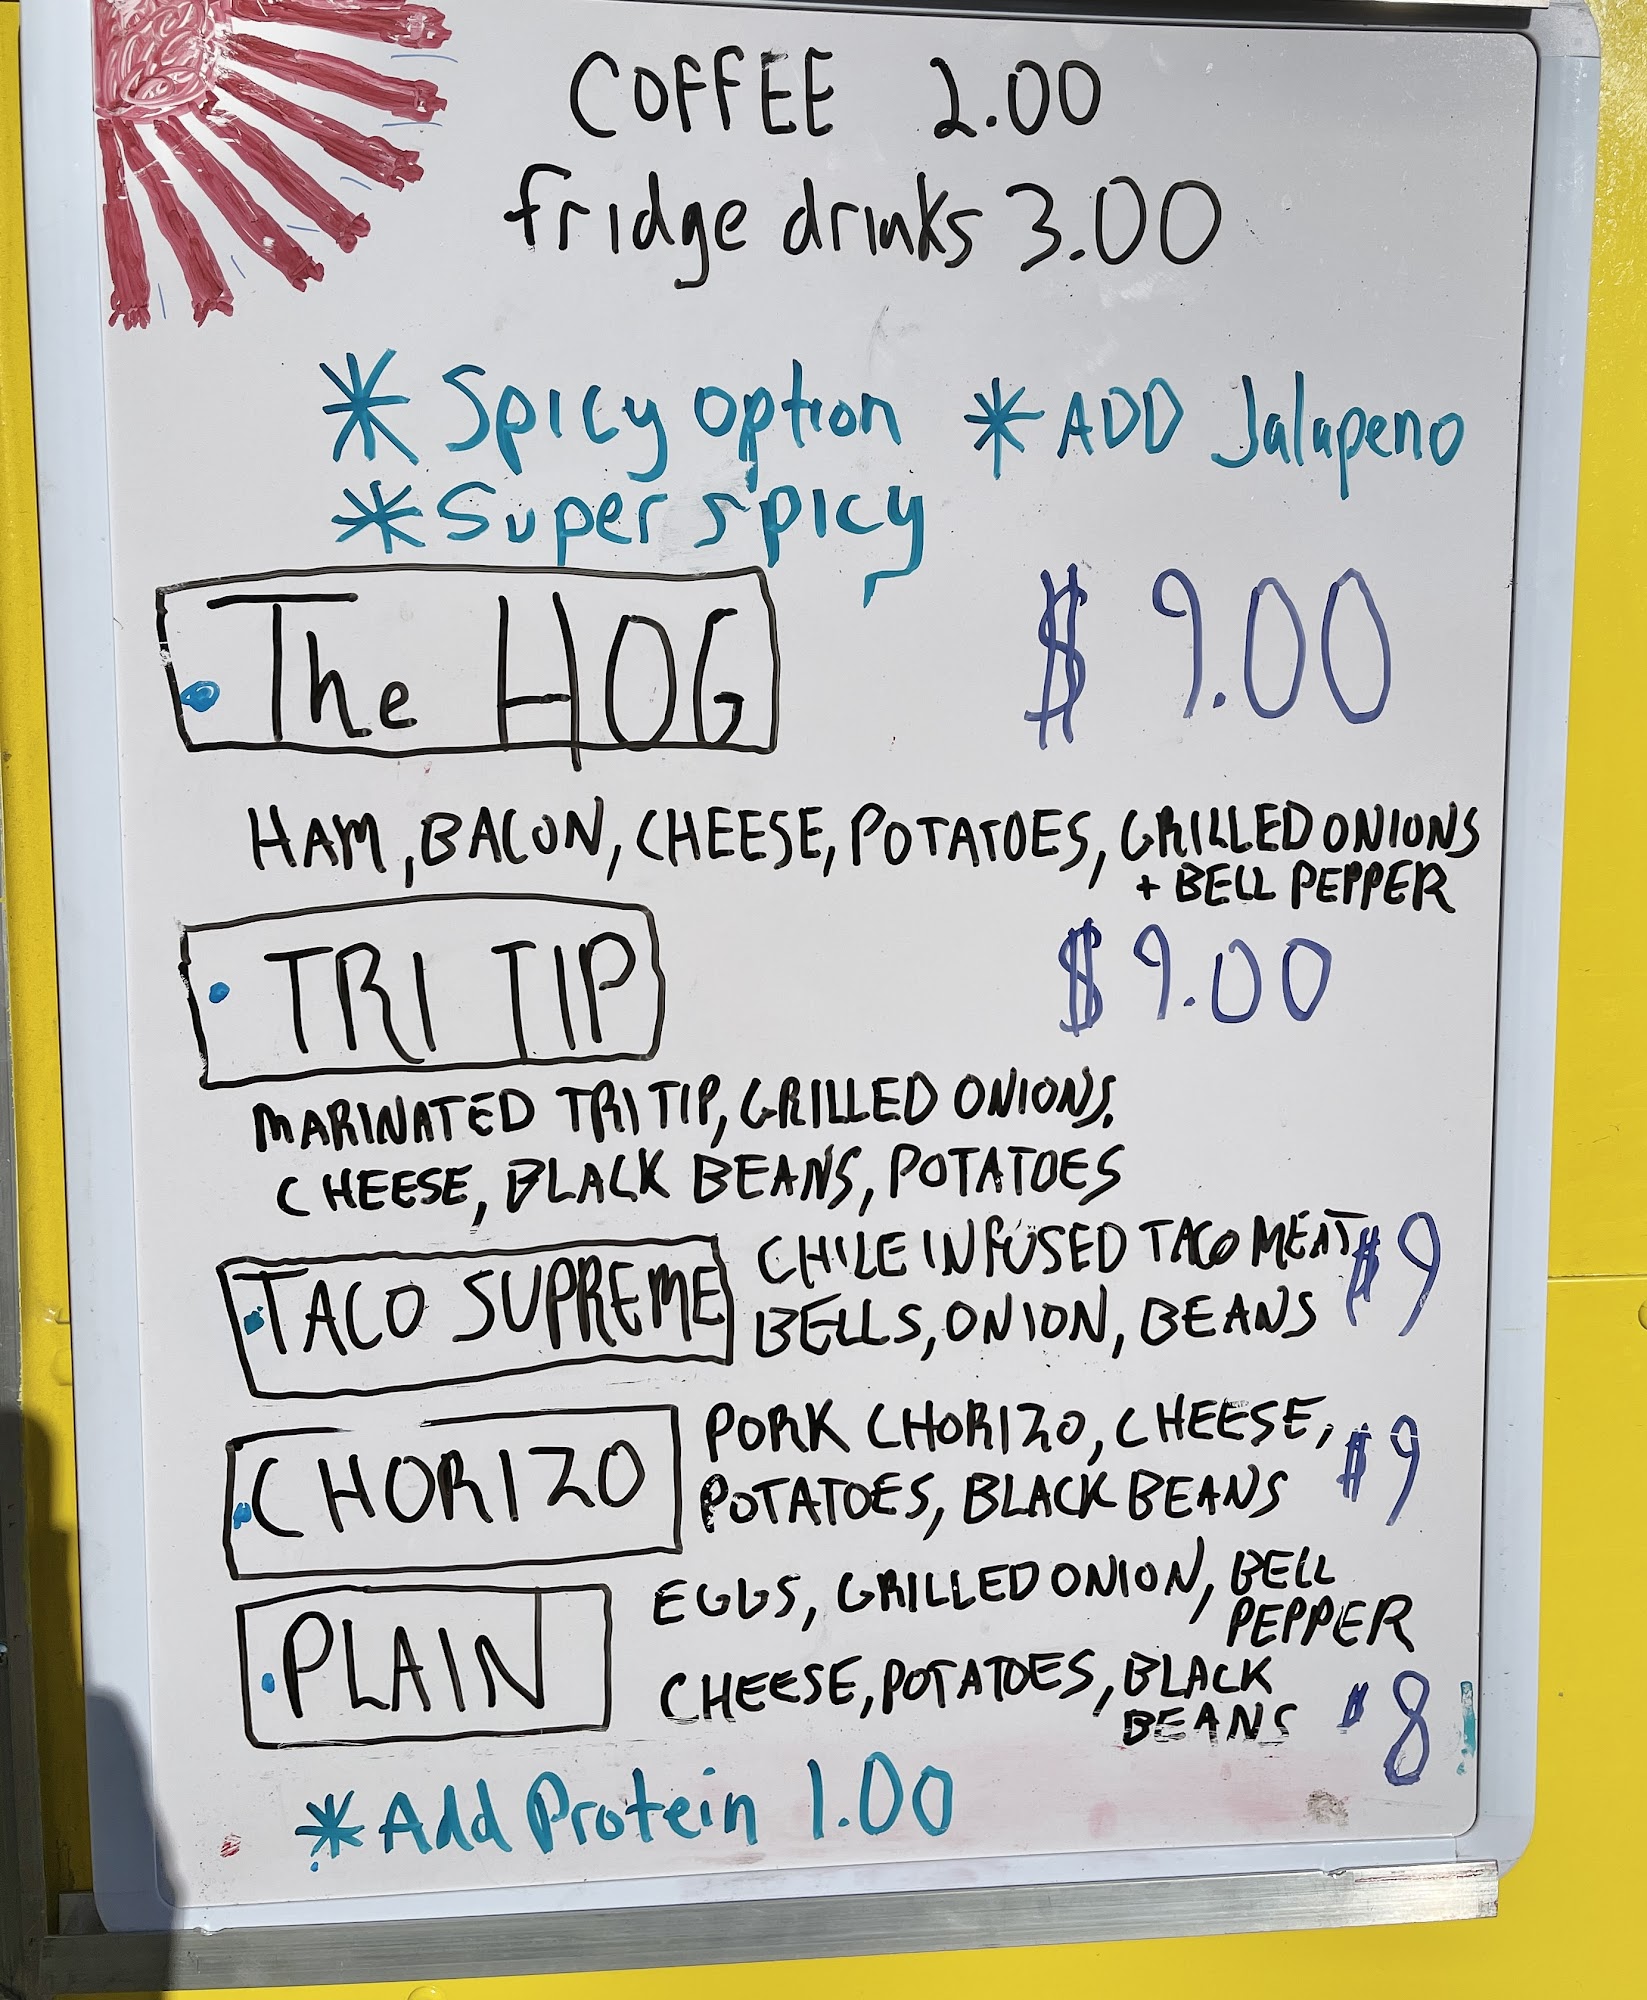 COFFEE 2.00
fridge drinks 3.00
* Spicy option * ADD Jalapeno
* Super spicy
The HOG $ 9.00
HAM, BACON, CHEESE, POTATOES, GRILLED ONIONS
+ BELL PEPPER
TRI TIP $ 9.00
MARINATED TRI TIP, GRILLED ONIONS,
CHEESE, BLACK BEANS, POTATOES
TACO SUPREME
CHILE INFUSED TACO MEAT $9
BELLS, ONION, BEANS
CHORIZO
PORK CHORIZO, CHEESE, $9
POTATOES, BLACK BEANS
PLAIN
EGGS, GRILLED ONION, BELL
PEPPER
CHEESE, POTATOES, BLACK
BEANS $8
* Add Protein 1.00